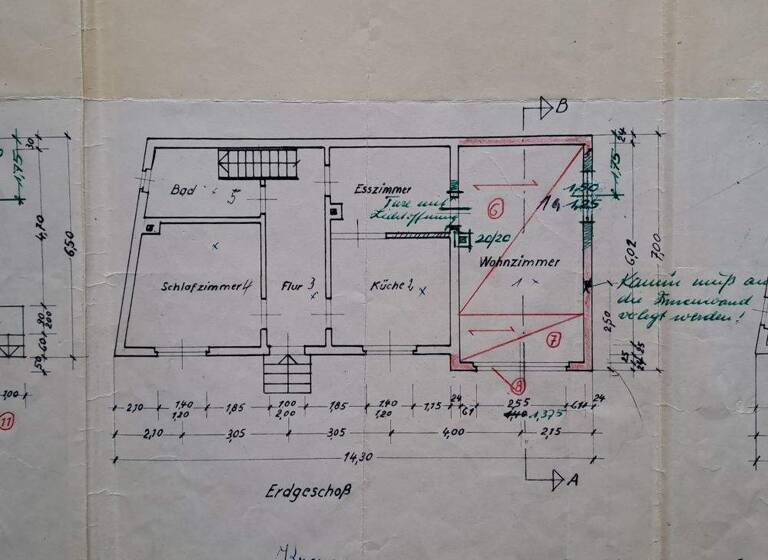 B
24
1,75
30
1,75
Bad
5
Esszimmer
Türe mit
Lichtöffnung
6
1,50
1,25
20/20
4,70
6,50
6,02
7,00
Wohnzimmer
1
Schlafzimmer 4
Flur 3
Küche 2
Kamin muß an
die Innenwand
verlegt werden!
2,50
7
8
11
2,10
1,40
1,20
1,85
1,00
2,00
1,85
1,40
1,20
1,75
24
61
2,55
1,375
24
2,10
3,05
3,05
4,00
2,15
14,30
A
Erdgeschoß